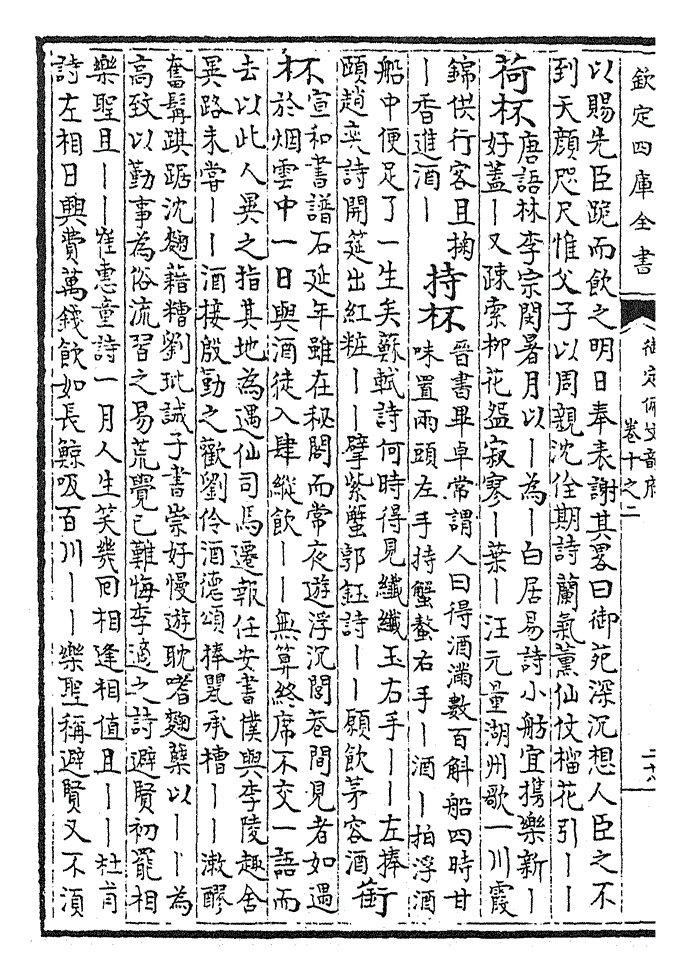 欽定四庫全書
御定佩文韻府
卷十之二
以賜先臣跪而飲之明日奉表謝其畧曰御苑深沉想人臣之不
到天顔咫尺惟父子以周親沈佺期詩蘭氣薰仙仗榴花引丨丨
荷杯
唐語林李宗閔暑月以丨為丨白居易詩小舫宜攜樂新丨
好蓋丨又疎索柳花盌寂寥丨葉丨汪元量湖州歌一川霞
錦供行客且掬
丨香進酒丨
持杯
晉書畢卓常謂人曰得酒滿數百斛船四時甘
味置兩頭左手持蟹螯右手丨酒丨拍浮酒
船中便足了一生矣蘇軾詩何時得見纖纖玉右手丨丨左捧
頤趙奕詩開筵出紅粧丨丨擘紫蟹郭鈺詩丨丨願飲茅容酒
銜
杯
宣和書譜石延年雖在秘閣而常夜遊浮沉閭巷間見者如遇
於烟雲中一日與酒徒入肆縱飲丨丨無算終席不交一語而
去以此人異之指其地為遇仙司馬遷報任安書僕與李陵趣舍
異路未嘗丨丨酒接殷勤之歡劉伶酒德頌捧甖承槽丨丨漱醪
奮髯踑踞沈麴藉糟劉玭誡子書崇好慢遊耽嗜麴蘖以丨丨為
高致以勤事為俗流習之易荒覺已難悔李適之詩避賢初罷相
樂聖且丨丨崔惠童詩一月人生笑幾回相逢相值且丨丨杜甫
詩左相日興費萬錢飲如長鯨吸百川丨丨樂聖稱避賢又不須